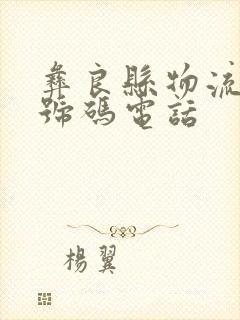 彝良縣物流
號碼電話
楊翼